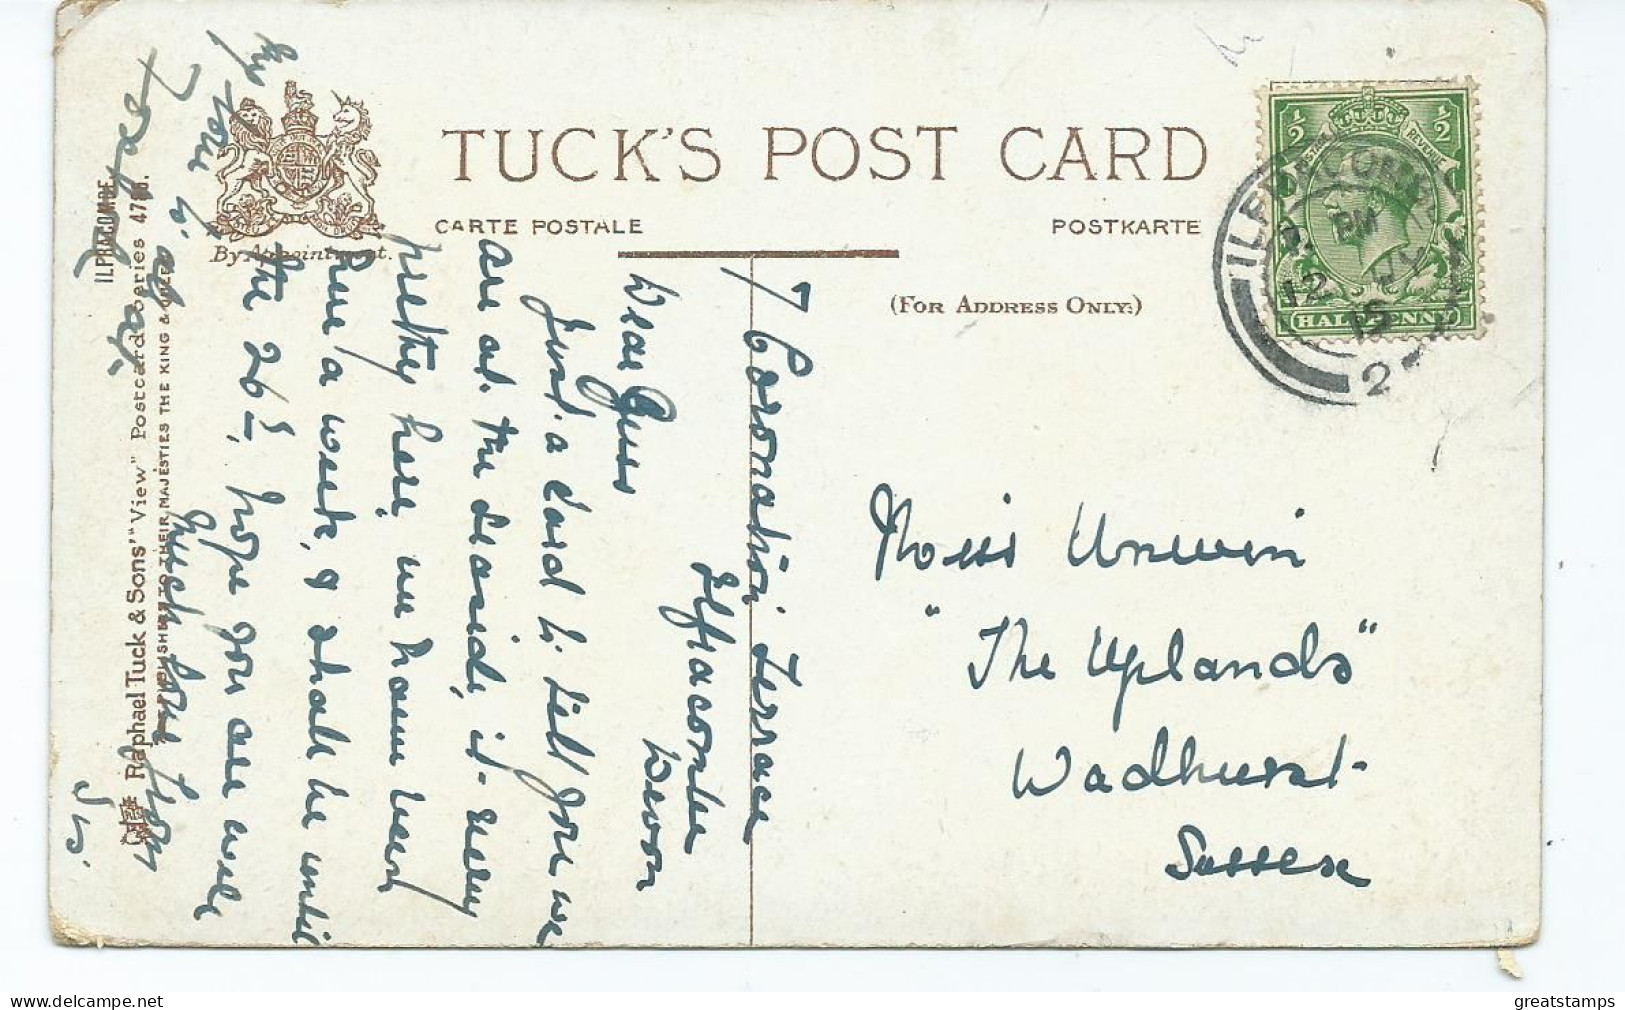 TUCK'S POST CARD
CARTE POSTALE
POSTKARTE
By Appointment.
(For Address Only.)
½ ½
POSTAGE REVENUE
HALFPENNY
ILFRACOMBE
PM
12 MY
15
2
ILFRACOMBE
Raphael Tuck & Sons' "View" Postcard Series 47
PUBLISHERS TO THEIR MAJESTIES THE KING & QUEEN
7 Coronation Terrace
Ilfracombe
Devon
Dear Guss
Just a card to tell you we
are at the seaside, it very
pretty here, we have been
here a week, & shall be until
the 26th, hope you are well
Much love from
Sis.
My love is
to all
today
Miss Unwin
"The Uplands"
Wadhurst
Sussex
greatstamps